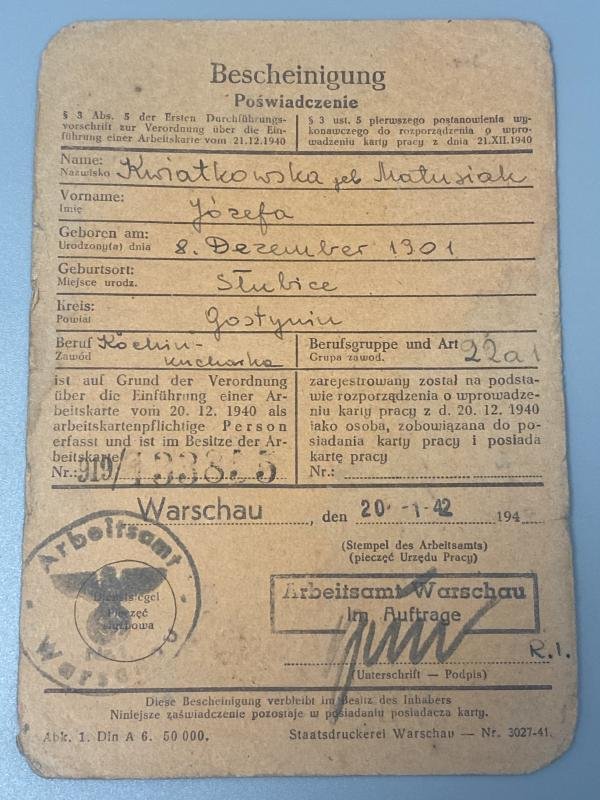 Bescheinigung
Poświadczenie
§ 3 Abs. 5 der Ersten Durchführungs-
vorschrift zur Verordnung über die Ein-
führung einer Arbeitskarte vom 21.12.1940
§ 3 ust. 5 pierwszego postanowienia wy-
konawczego do rozporządzenia o wpro-
wadzeniu karty pracy z dnia 21.XII.1940
Name: Kwiatkowska geb Matusiak
Nazwisko
Vorname: Józefa
Imię
Geboren am: 8. Dezember 1901
Urodzony(a) dnia
Geburtsort: Słubice
Miejsce urodz.
Kreis: Gostynin
Powiat
Beruf Köchin-
Zawód kucharka
Berufsgruppe und Art 22a1
Grupa zawod.
ist auf Grund der Verordnung
über die Einführung einer Ar-
beitskarte vom 20. 12. 1940 als
arbeitskartenpflichtige Person
erfasst und ist im Besitze der Ar-
beitskarte
Nr.: 919/133855
zarejestrowany został na podsta-
wie rozporządzenia o wprowadze-
niu karty pracy z d. 20. 12. 1940
jako osoba, zobowiązana do po-
siadania karty pracy i posiada
kartę pracy
Nr.:
Warschau, den 20. -1-42 194
(Stempel des Arbeitsamts)
(pieczęć Urzędu Pracy)
Arbeitsamt
Dienstsiegel
Pieczęć
służbowa
Warschau
Arbeitsamt Warschau
Im Auftrage
R.I.
(Unterschrift — Podpis)
Diese Bescheinigung verbleibt im Besitz des Inhabers
Niniejsze zaświadczenie pozostaje w posiadaniu posiadacza karty.
Abk. 1. Din A 6. 50 000.
Staatsdruckerei Warschau — Nr. 3027-41.